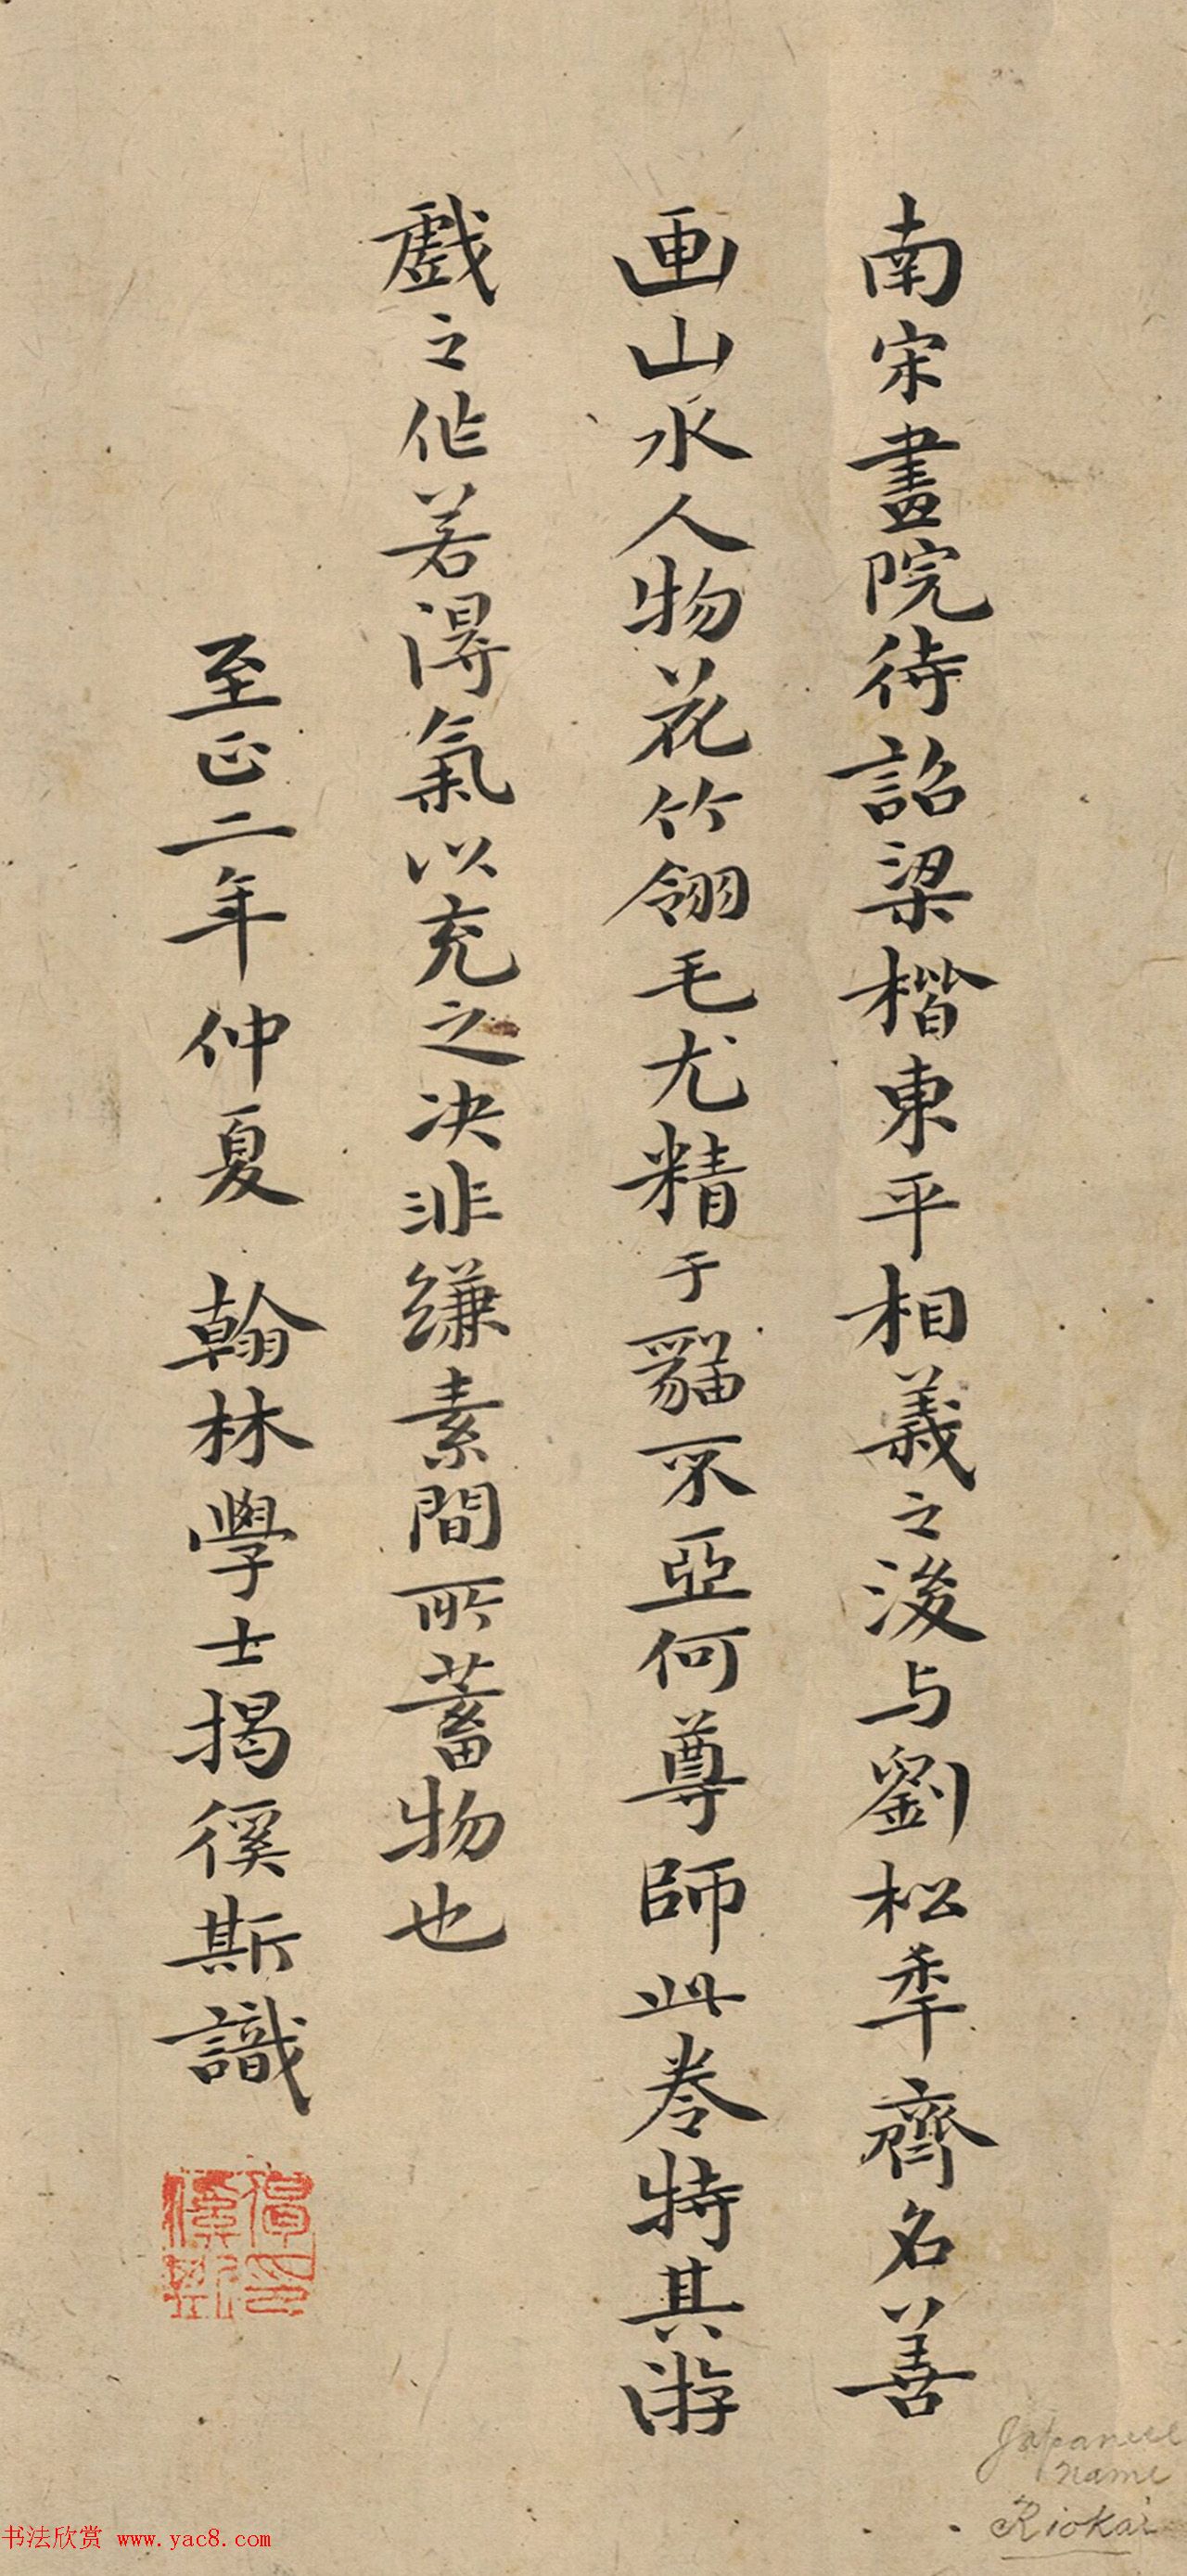 南宋畫院待詔梁楷東平相義之後与劉松年齊名善
画山水人物花竹翎毛尤精于貓不亞何尊師此卷特其游
戲之作若得氣以充之决非縑素間所蓄物也
至正二年仲夏 翰林學士揭傒斯識
Japanese
name
Riokai
书法欣赏 www.yac8.com